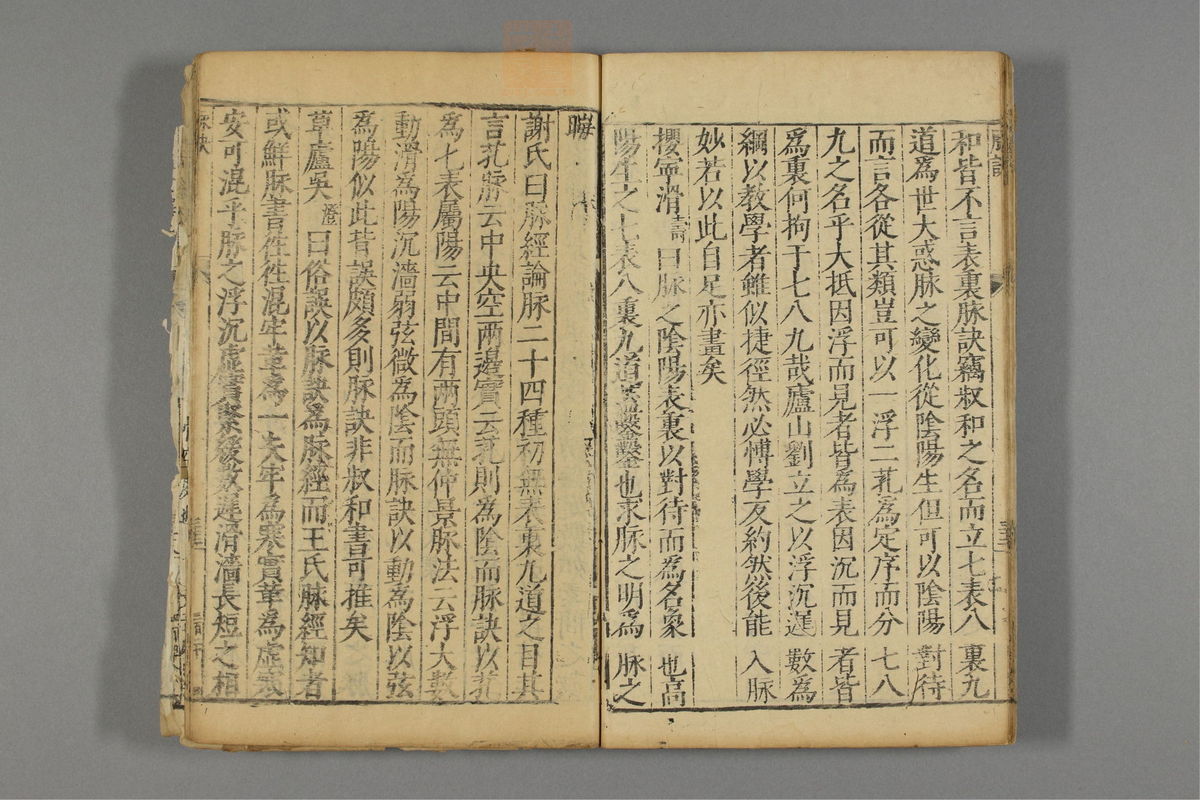 和皆不言表裏脉訣竊叔和之名而立七表八裏九
道爲世大惑脉之變化從陰陽生但可以陰陽對待
而言各從其類豈可以一浮二芤爲定序而分七八
九之名乎大抵因浮而見者皆爲表因沉而見者皆
爲裏何拘于七八九哉廬山劉立之以浮沉遲數爲
綱以教學者雖似捷徑然必愽學反約然後能入脉
妙若以此自足亦畫矣
攖寧滑壽曰脉之陰陽表裏以對待而爲名象也高
陽生之七表八裏九道盖鑿鑿也求脉之明爲脉之
晦
謝氏曰脉經論脉二十四種初無表裏九道之目其
言芤脉云中央空兩邊實云芤則爲陰而脉訣以芤
爲七表屬陽云中間有兩頭無仲景脉法云浮大數
動滑爲陽沉濇弱弦微爲陰而脉訣以動爲陰以弦
爲陽似此皆誤頗多則脉訣非叔和書可推矣
草廬吳澄曰俗誤以脉訣爲脉經而王氏脉經知者
或鮮脉書徃徃混牢革爲一夫牢爲寒實革爲虛寒
安可混乎脉之浮沉虛實緊緩數遲滑濇長短之相
脉訣